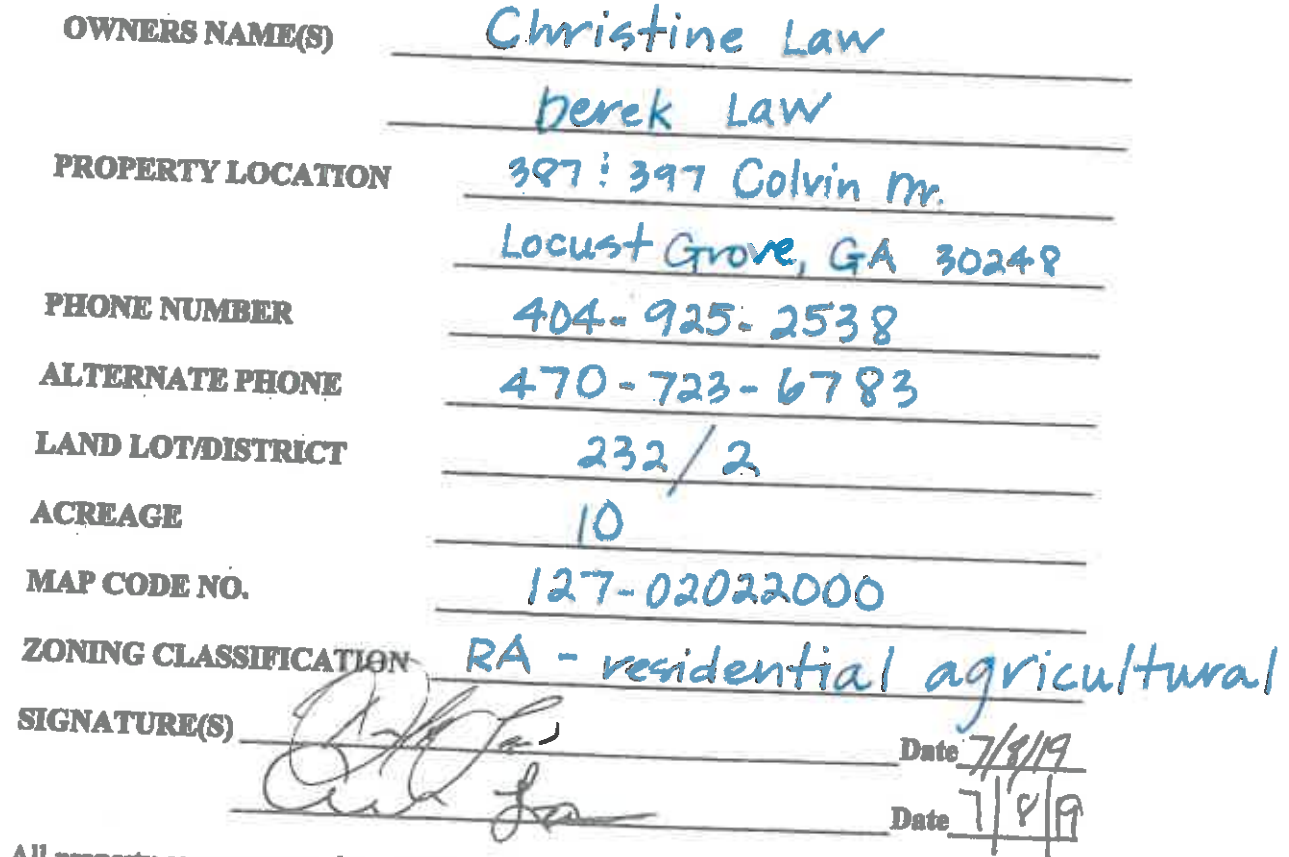 OWNERS NAME(S) Christine Law
Derek Law
PROPERTY LOCATION 387 & 397 Colvin Dr.
Locust Grove, GA 30248
PHONE NUMBER 404-925-2538
ALTERNATE PHONE 470-723-6783
LAND LOT/DISTRICT 232/2
ACREAGE 10
MAP CODE NO. 127-02022000
ZONING CLASSIFICATION RA - residential agricultural
SIGNATURE(S) Date 7/8/19
Date 7/8/19
All property